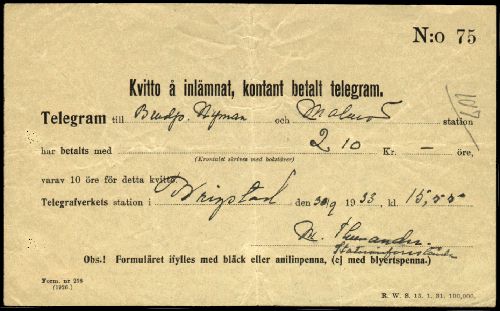 N:o 75
Kvitto å inlämnat, kontant betalt telegram.
Telegram till Nyman och Malmö station
har betalts med 2 10 Kr. — öre,
(Krontalet skrives med bokstäver)
varav 10 öre för detta kvitto.
Telegrafverkets station i Vrigstad den 30/9 1933, kl. 15,55
M.
Obs.! Formuläret ifylles med bläck eller anilinpenna, (ej med blyertspenna.)
Form. nr 298
(1926.)
R. W. S. 15. 1. 31. 100,000.